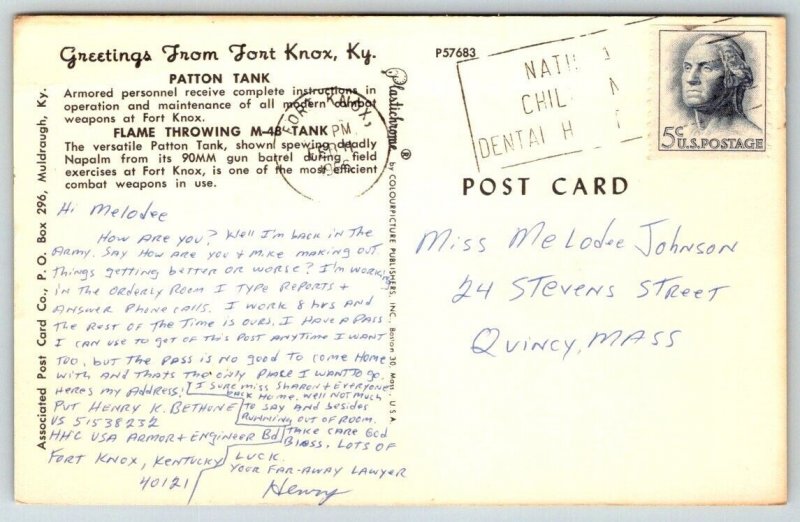 Greetings From Fort Knox, Ky.
PATTON TANK
Armored personnel receive complete instructions in
operation and maintenance of all modern combat
weapons at Fort Knox.
FLAME THROWING M-48 TANK
The versatile Patton Tank, shown spewing deadly
Napalm from its 90MM gun barrel during field
exercises at Fort Knox, is one of the most efficient
combat weapons in use.
Associated Post Card Co., P. O. Box 296, Muldraugh, Ky.
Hi Melodee
How are you? Well I'm back in the
Army. Say how are you & Mike making out
things getting better or worse? I'm working
in the orderly room I type reports &
answer phone calls. I work 8 hrs and
the rest of the time is ours. I have a pass
I can use to get of this post anytime I want
too, but the pass is no good to come home
with and thats the only place I want to go.
Heres my address!
Pvt Henry K. Bethune
US 51538232
HHC USA Armor & Engineer Bd
Fort Knox, Kentucky
40121
I sure miss Sharon & everyone
back home. Well not much
to say and besides
running out of room.
Take care God
Bless. Lots of
Luck.
Your far-away lawyer
Henry
Plastichrome ® by COLOURPICTURE PUBLISHERS, INC., Boston 30, Mass., U.S.A.
P57683
FORT KNOX,
PM
DENTAL H
5c
U.S. POSTAGE
POST CARD
Miss Melodee Johnson
24 Stevens Street
Quincy, Mass